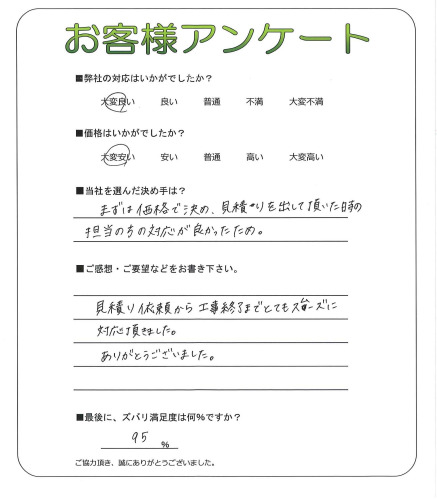 お客様アンケート
■弊社の対応はいかがでしたか？
大変良い 良い 普通 不満 大変不満
■価格はいかがでしたか？
大変安い 安い 普通 高い 大変高い
■当社を選んだ決め手は？
まずは価格で決め、見積りを出して頂いた時の
担当の方の対応が良かったため。
■ご感想・ご要望などをお書き下さい。
見積り依頼から工事終了までとてもスムーズに
対応頂きました。
ありがとうございました。
■最後に、ズバリ満足度は何%ですか？
95 %
ご協力頂き、誠にありがとうございました。